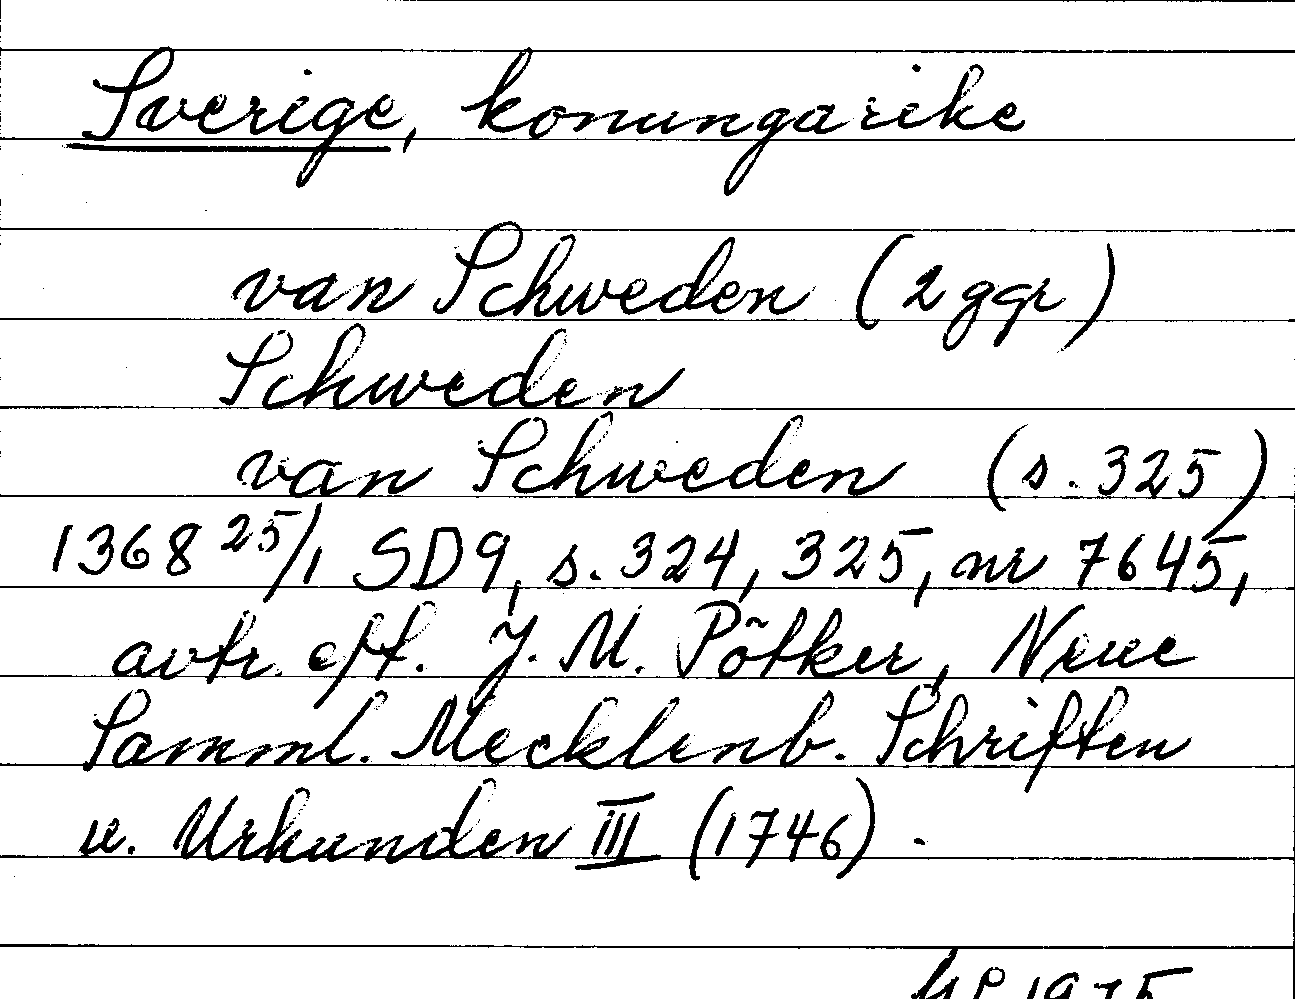 Sverige, konungarike
van Schweden (2 ggr)
Schweden
van Schweden (s. 325)
1368 25/1 SD9, s. 324, 325, nr 7645,
avtr. eft. J. M. Pötker, Neue
Samml. Mecklenb. Schriften
u. Urkunden III (1746).
1975